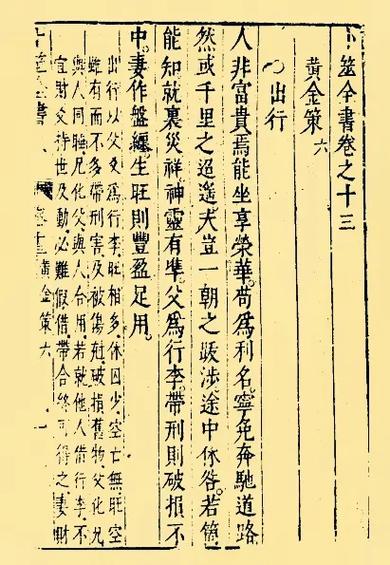 卜筮全書卷之十三
黃金策 六
○出行
人非富貴焉能坐享榮華。苟爲利名。寧免奔馳道路
然或千里之迢遥。夫豈一朝之跋涉。途中休咎。若箇
能知。就裏災祥。神靈有準。父爲行李。帶刑則破損不
中。妻作盤纏。生旺則豐盈足用。
出行以父爻爲行李旺相多休囚少空亡無旺空
雖有而不多帶刑害及被傷尅破損舊物父化兄
與人同睡兄化父與人合用若就他人借行李不
宜財爻持世及動必難假借帶合終可得之妻財
卜筮全書 黃金策六 一